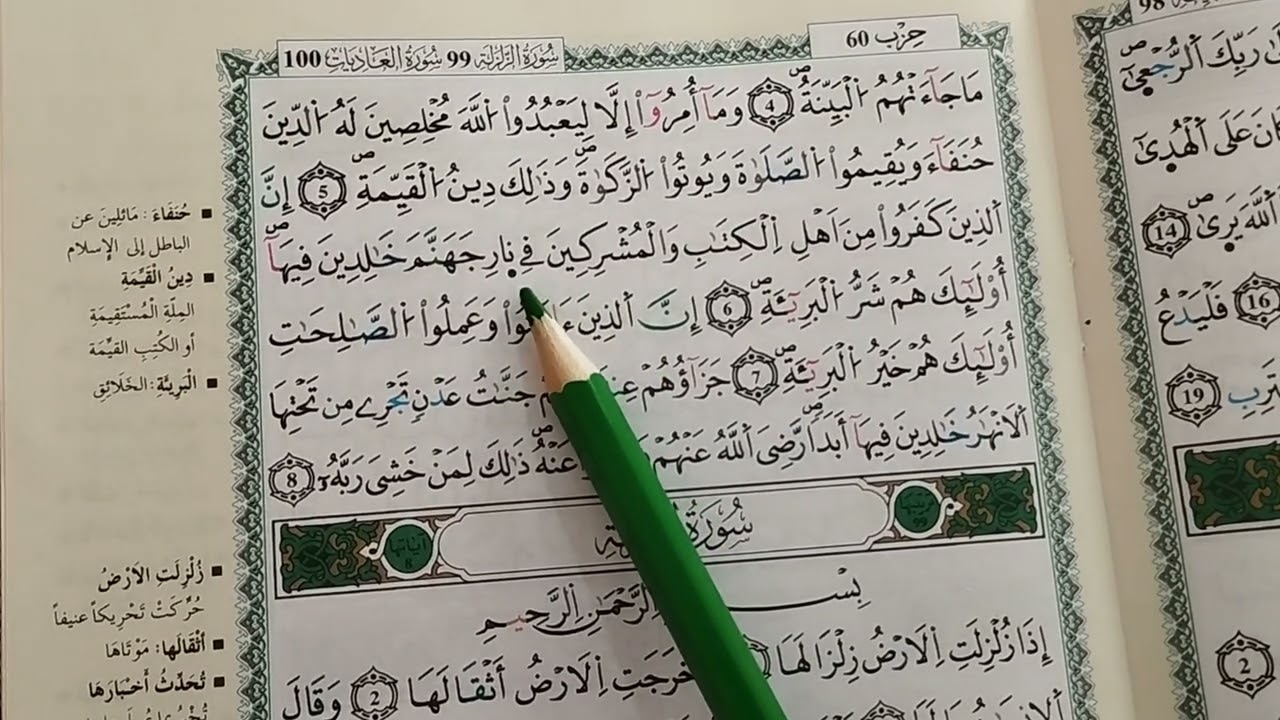 حِزْب 60
سُورَةُ الزَّلْزَلَةِ 99 سُورَةُ العَادِيَاتِ 100
مَا جَآءَتْهُمُ اُلْبَيِّنَةُۖ 4 وَمَآ أُمِرُوٓاْ إِلَّا لِيَعْبُدُواْ اُللَّهَ مُخْلِصِينَ لَهُ اُلدِّينَ
حُنَفَآءَ وَيُقِيمُواْ اُلصَّلَوٰةَ وَيُوتُواْ اُلزَّكَوٰةَۖ وَذَٰلِكَ دِينُ اُلْقَيِّمَةِۖ 5 إِنَّ
اَلذِينَ كَفَرُواْ مِنَ اَهْلِ اِلْكِتَٰبِ وَالْمُشْرِكِينَ فِے نارِ جَهَنَّمَ خَٰلِدِينَ فِيهَآۖ
أُوْلَٰٓئِكَ هُمْ شَرُّ اُلْبَرِيٓـَٔةِۖ 6 إِنَّ اَلذِينَ ءَامَنُواْ وَعَمِلُواْ اُلصَّٰلِحَٰتِ
أُوْلَٰٓئِكَ هُمْ خَيْرُ اُلْبَرِيٓـَٔةِ 7 جَزَآؤُهُمْ جَنَّٰتُ عَدْنٍ تَجْرِے مِن تَحْتِهَا
اَلَانْهَٰرُ خَٰلِدِينَ فِيهَآ أَبَداٗۖ رَّضِيَ اَللَّهُ عَنْهُمْ عَنْهُۖ ذَٰلِكَ لِمَنْ خَشِيَ رَبَّهُۥ 8
سُورَةُ
ترتيبها 99
آياتها 8
بِسْــــمِ اِللَّهِ اِلرَّحْمَٰنِ اِلرَّحِيمِ
إِذَا زُلْزِلَتِ اِلَارْضُ زِلْزَالَهَا وَأَخْرَجَتِ اِلَارْضُ أَثْقَالَهَا 2 وَقَالَ
■ حُنَفَاءَ : مَائِلِينَ عن
الباطل إلى الإسلام
■ دِينُ الْقَيِّمَةِ
المِلَّة الْمُسْتَقِيمَةِ
أو الكُتُبِ القَيِّمَة
■ الْبَرِيئَةِ : الخَلَائِقِ
■ زُلْزِلَتِ الَارْضُ
حُرِّكَتْ تَحْرِيكاً عنيفاً
■ أَثْقَالَها: مَوْتَاهَا
■ تُحَدِّثُ أَخْبَارَهَا
98
رَبِّكَ اَلرُّجْعَىٰٓۖ
عَلَى اَلْهُدَىٰٓ
اَللَّهَ يَرَىٰۖ 14
16 فَلْيَدْعُ
19
2